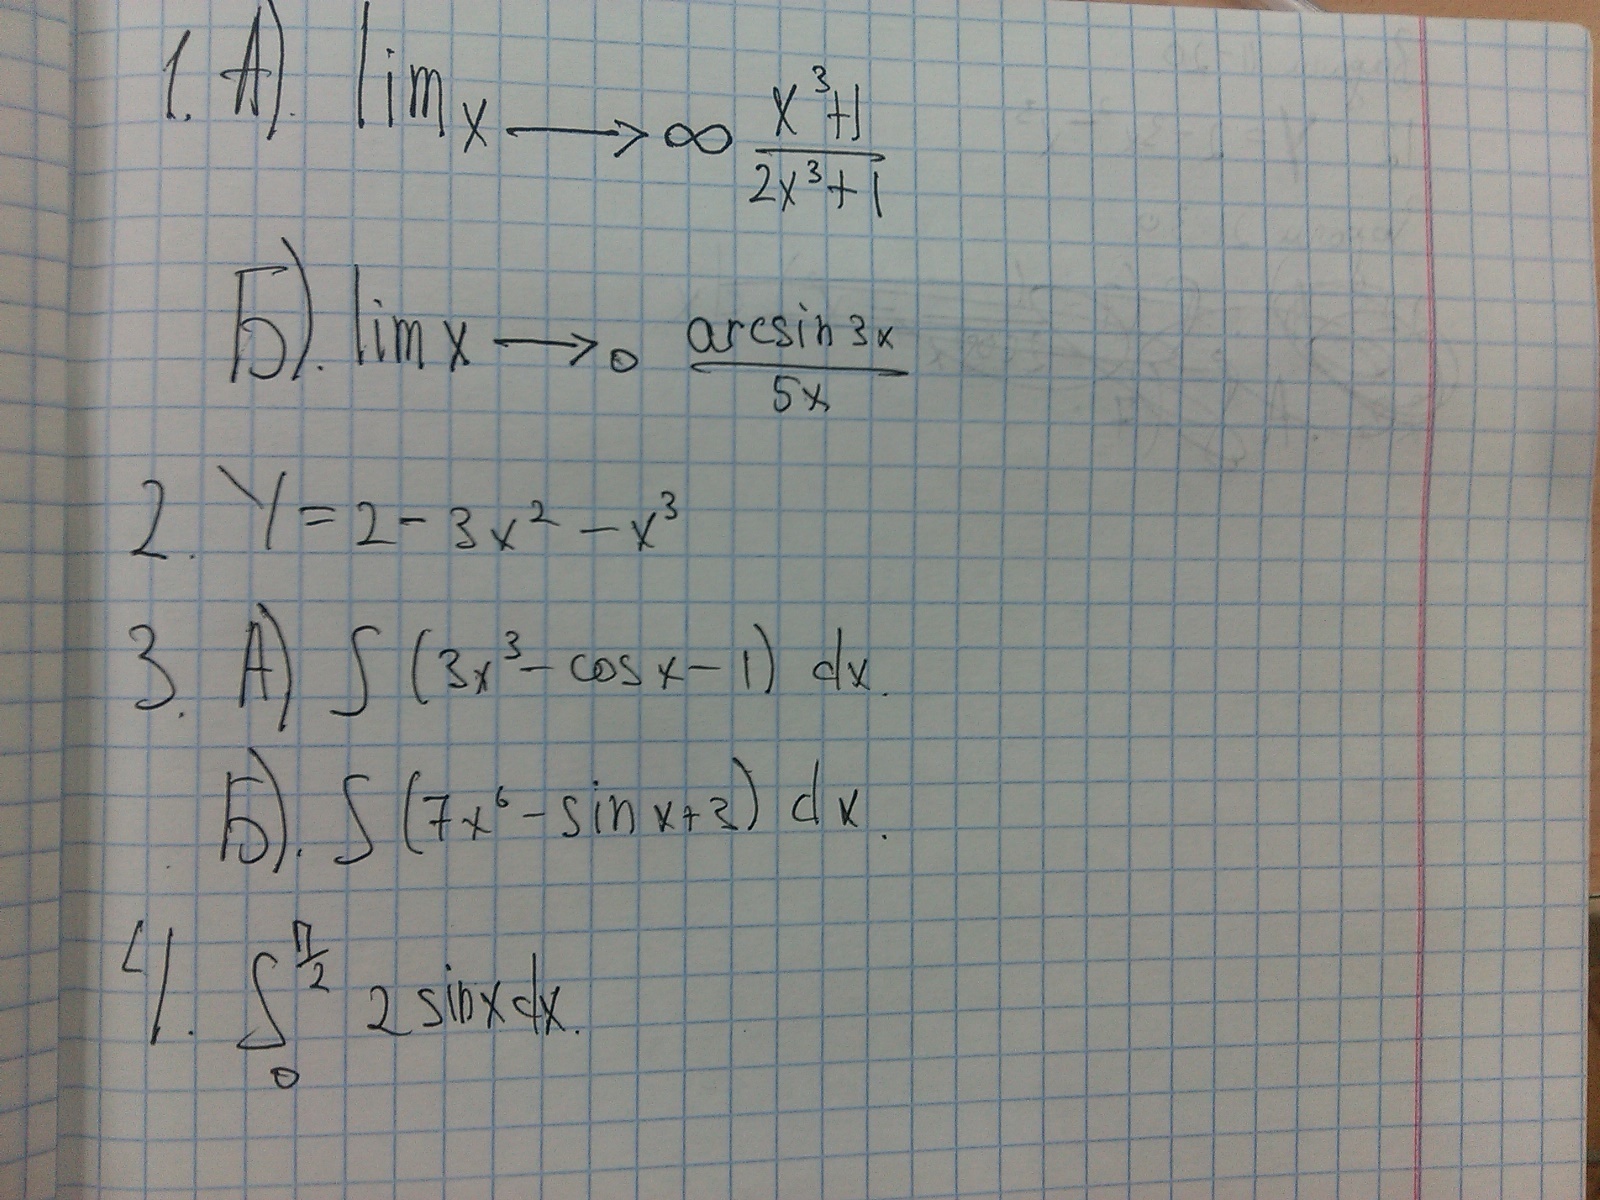 1. А). lim x → ∞ (x³+1)/(2x³+1)
Б). lim x → 0 (arcsin 3x)/(5x)
2. Y = 2 - 3x² - x³
3. А) ∫ (3x³ - cos x - 1) dx.
Б). ∫ (7x⁶ - sin x + 3) dx.
4. ∫₀^(π/2) 2 sin x dx.